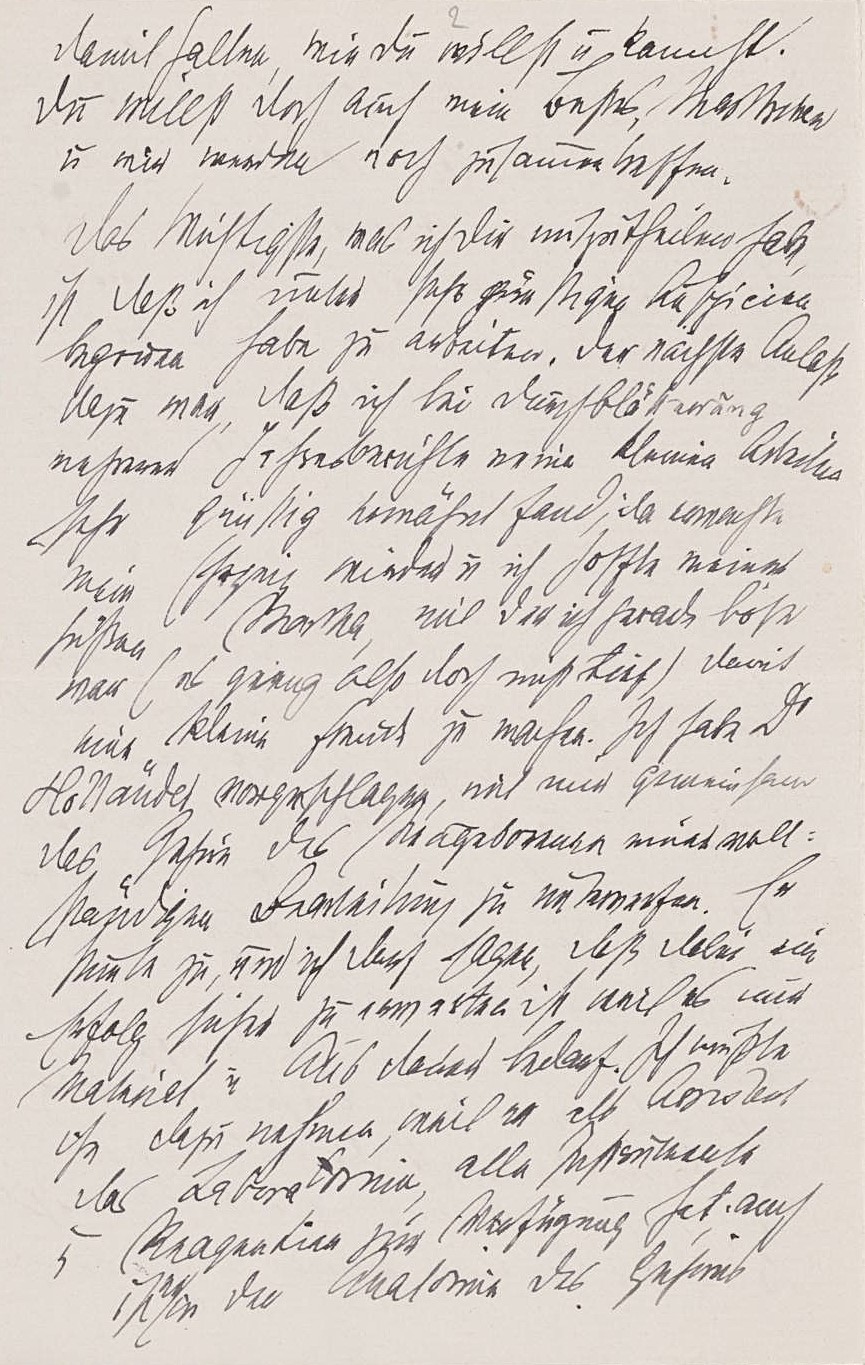 2
damit halten, wie du willst u kannst.
Du willst doch auch mein Bestes, Marthchen
u wir werden noch zusammentreffen.
Das Wichtigste, was ich Dir mitzutheilen habe,
ist daß ich unter sehr günstigen Auspicien
begonnen habe zu arbeiten. Der nächste Anlaß
dazu war, daß ich bei Durchblätterung
mehrerer Jahresberichte meine kleinen Arbeiten
sehr günstig erwähnt fand, da erwachte
mein Ehrgeiz wieder u ich hoffte meiner
süßen Martha, mit der ich gerade böse
war (es gieng also doch nicht tief) damit
eine kleine Freude zu machen. Ich habe Dr
Holländer vorgeschlagen, mit mir gemeinsam
das Gehirn des Neugeborenen einer voll=
ständigen Bearbeitung zu unterwerfen. Er
stimmte zu, und ich darf sagen, daß dabei ein
Erfolg sicher zu erwarten ist weil es nur
Material u Ausdauer bedarf. Ich mußte
ihn dazu nehmen, weil er als Assistent
des Laboratoriums, alle Instrumente
u Reagentien zur Verfügung hat. auch
ist er in der Anatomie des Gehirns